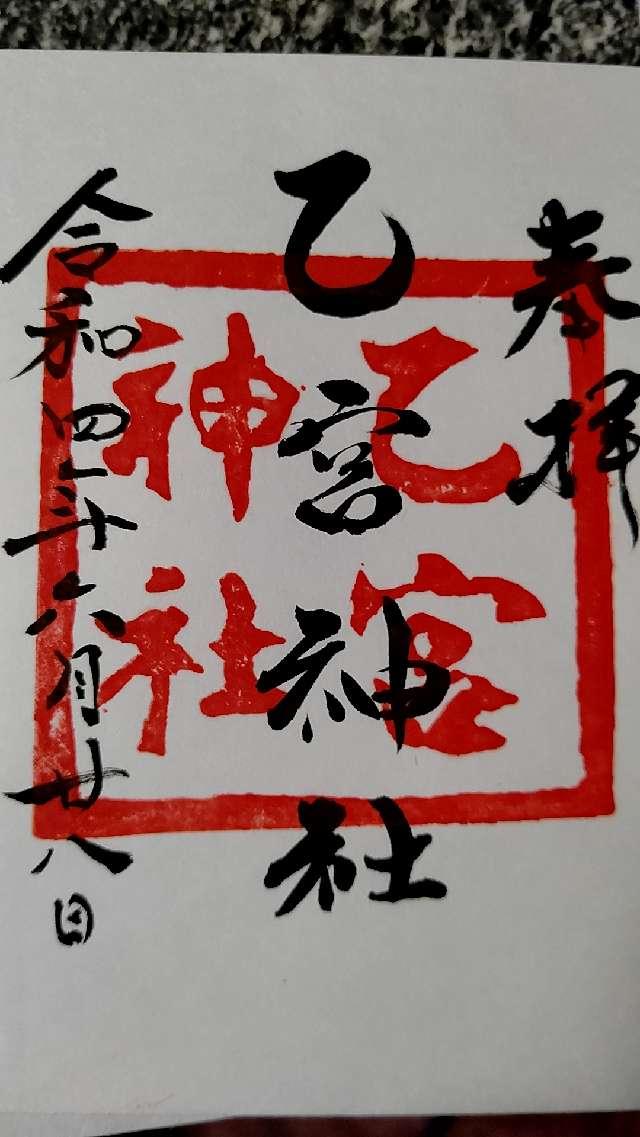 奉拝
乙宮神社
令和四年六月廿八日
乙宮
神社